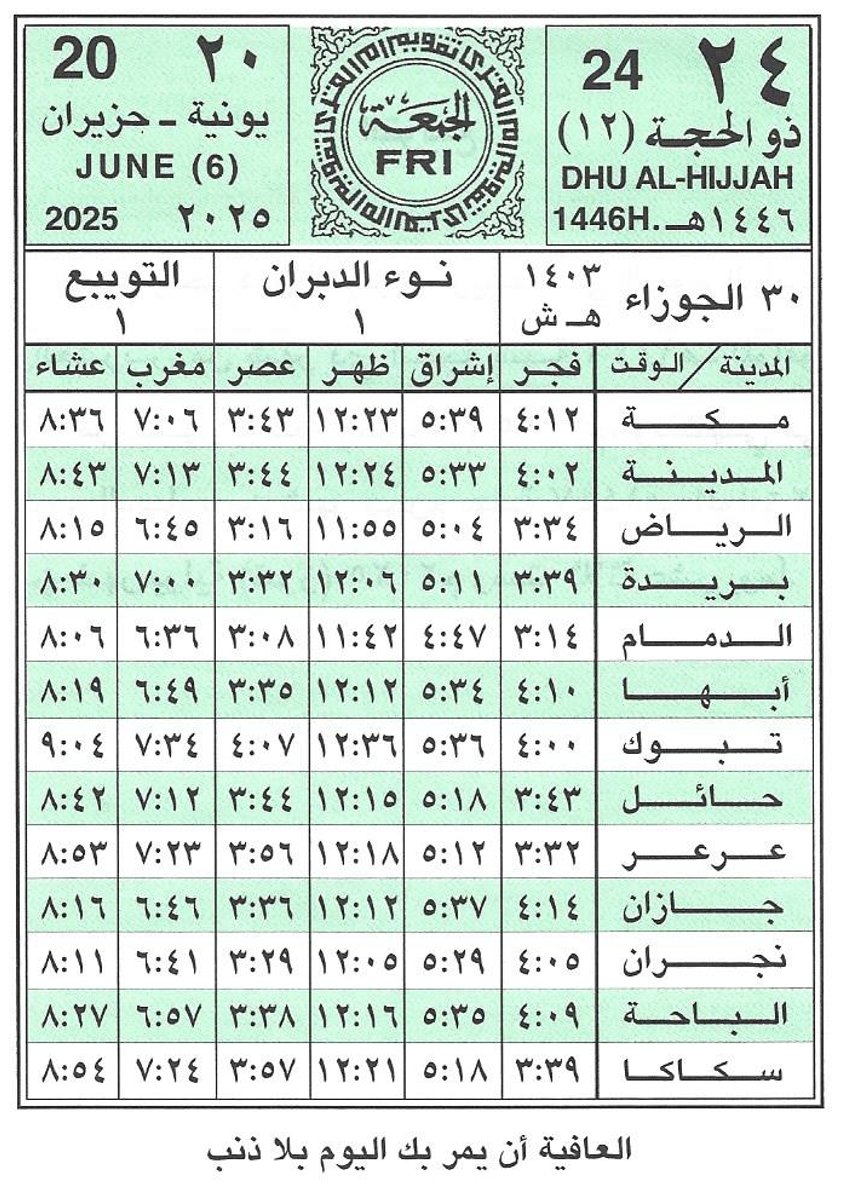 20 ٢٠
يونية - حزيران
JUNE (6)
2025 ٢٠٢٥
تقويم أم القرى
الجمعة
FRI
24 ٢٤
ذو الحجة (١٢)
DHU AL-HIJJAH
1446H. ١٤٤٦هـ
٣٠ الجوزاء ١٤٠٣ هـ ش
نوء الدبران
١
التويبع
١
المدينة / الوقت فجر إشراق ظهر عصر مغرب عشاء
مكة ٤:١٢ ٥:٣٩ ١٢:٢٣ ٣:٤٣ ٧:٠٦ ٨:٣٦
المدينة ٤:٠٢ ٥:٣٣ ١٢:٢٤ ٣:٤٤ ٧:١٣ ٨:٤٣
الرياض ٣:٣٤ ٥:٠٤ ١١:٥٥ ٣:١٦ ٦:٤٥ ٨:١٥
بريدة ٣:٣٩ ٥:١١ ١٢:٠٦ ٣:٣٢ ٧:٠٠ ٨:٣٠
الدمام ٣:١٤ ٤:٤٧ ١١:٤٢ ٣:٠٨ ٦:٣٦ ٨:٠٦
أبها ٤:١٠ ٥:٣٤ ١٢:١٢ ٣:٣٥ ٦:٤٩ ٨:١٩
تبوك ٤:٠٠ ٥:٣٦ ١٢:٣٦ ٤:٠٧ ٧:٣٤ ٩:٠٤
حائل ٣:٤٣ ٥:١٨ ١٢:١٥ ٣:٤٤ ٧:١٢ ٨:٤٢
عرعر ٣:٣٢ ٥:١٢ ١٢:١٨ ٣:٥٦ ٧:٢٣ ٨:٥٣
جازان ٤:١٤ ٥:٣٧ ١٢:١٢ ٣:٣٦ ٦:٤٦ ٨:١٦
نجران ٤:٠٥ ٥:٢٩ ١٢:٠٥ ٣:٢٩ ٦:٤١ ٨:١١
الباحة ٤:٠٩ ٥:٣٥ ١٢:١٦ ٣:٣٨ ٦:٥٧ ٨:٢٧
سكاكا ٣:٣٩ ٥:١٨ ١٢:٢١ ٣:٥٧ ٧:٢٤ ٨:٥٤
العافية أن يمر بك اليوم بلا ذنب